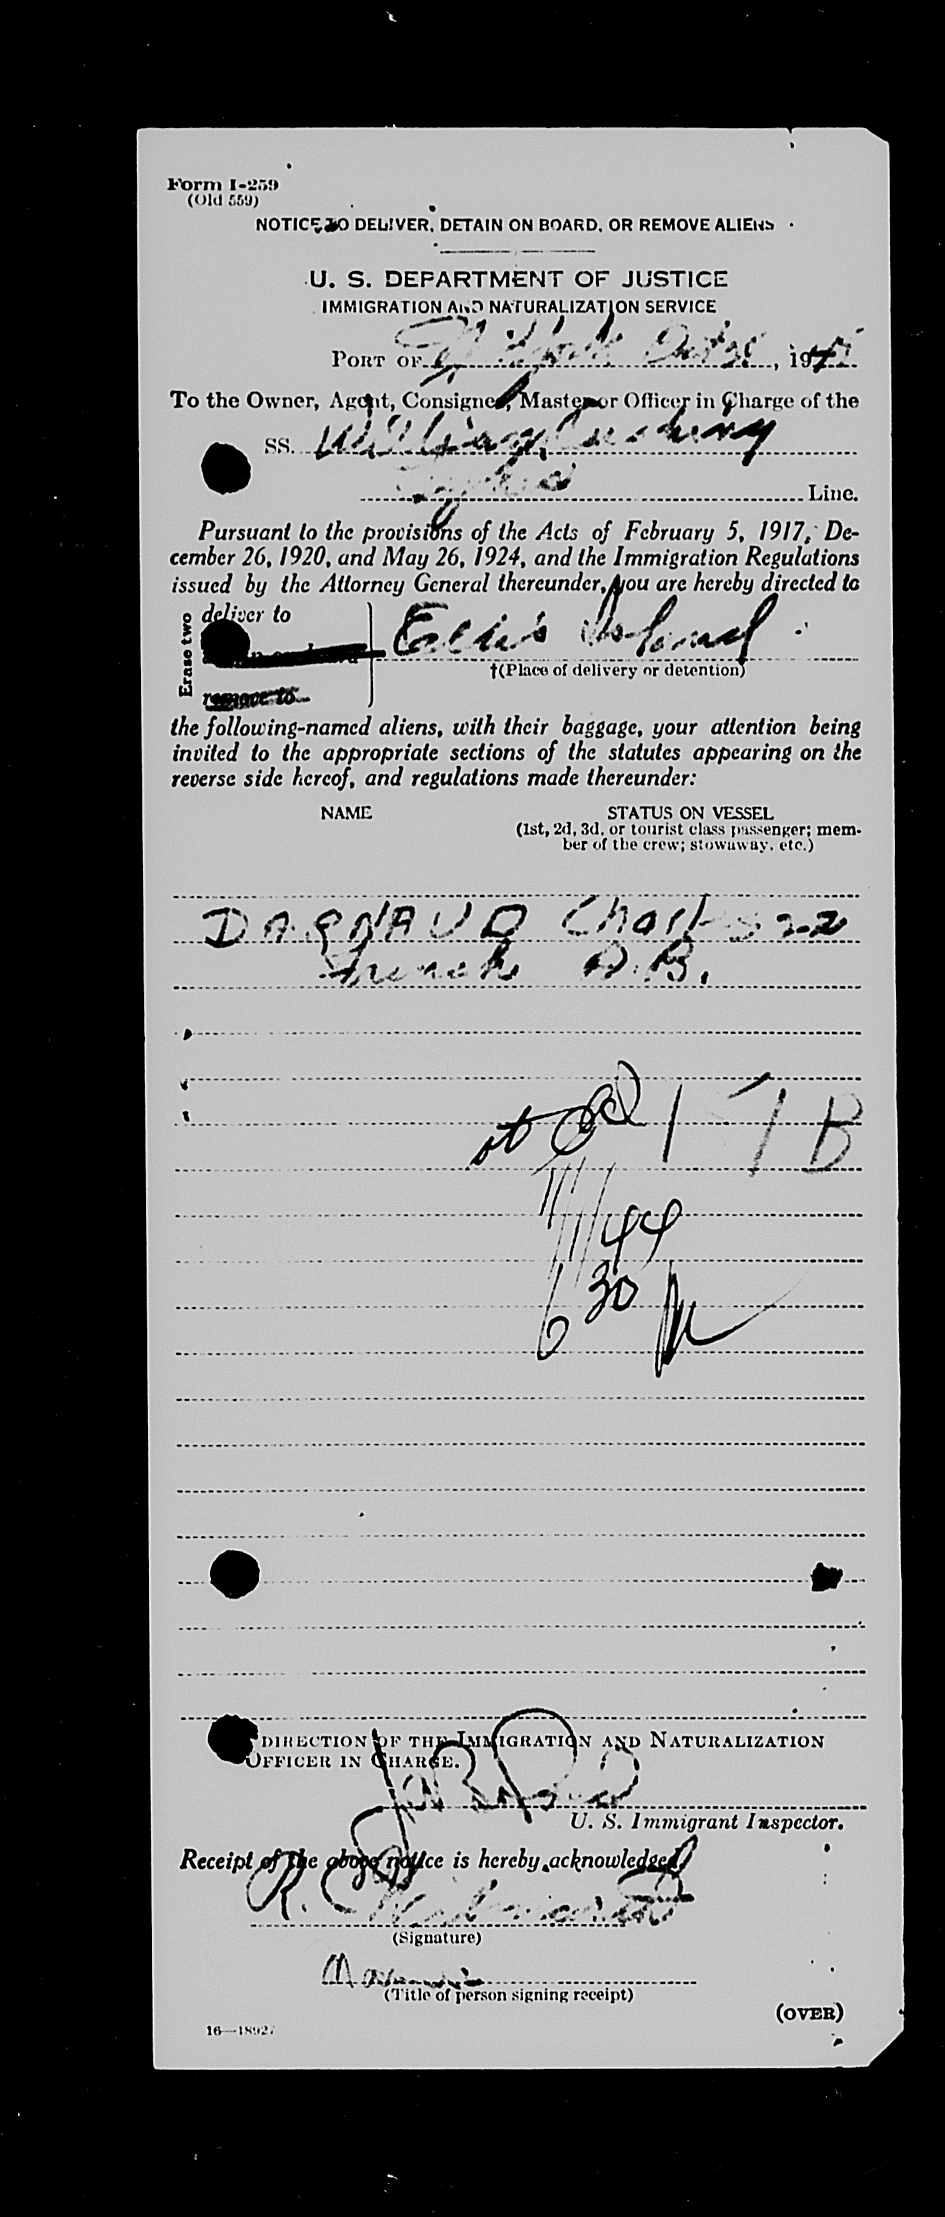 Form I-259
(Old 559)
NOTICE TO DELIVER, DETAIN ON BOARD, OR REMOVE ALIENS
U. S. DEPARTMENT OF JUSTICE
IMMIGRATION AND NATURALIZATION SERVICE
PORT OF N. York Oct 31, 19
To the Owner, Agent, Consignee, Master or Officer in Charge of the
SS. William Cushing
Line.
Pursuant to the provisions of the Acts of February 5, 1917, De-
cember 26, 1920, and May 26, 1924, and the Immigration Regulations
issued by the Attorney General thereunder, you are hereby directed to
Erase two
deliver to
Ellis Island
†(Place of delivery or detention)
remove to
the following-named aliens, with their baggage, your attention being
invited to the appropriate sections of the statutes appearing on the
reverse side hereof, and regulations made thereunder:
NAME STATUS ON VESSEL
(1st, 2d, 3d, or tourist class passenger; mem-
ber of the crew; stowaway, etc.)
DAGNAUD Charles 22
French A.B.
at 157B
11/1/44
6 30 PM
DIRECTION OF THE IMMIGRATION AND NATURALIZATION
OFFICER IN CHARGE.
U. S. Immigrant Inspector.
Receipt of the above notice is hereby acknowledged
R.
(Signature)
(Title of person signing receipt)
16—18927
(OVER)